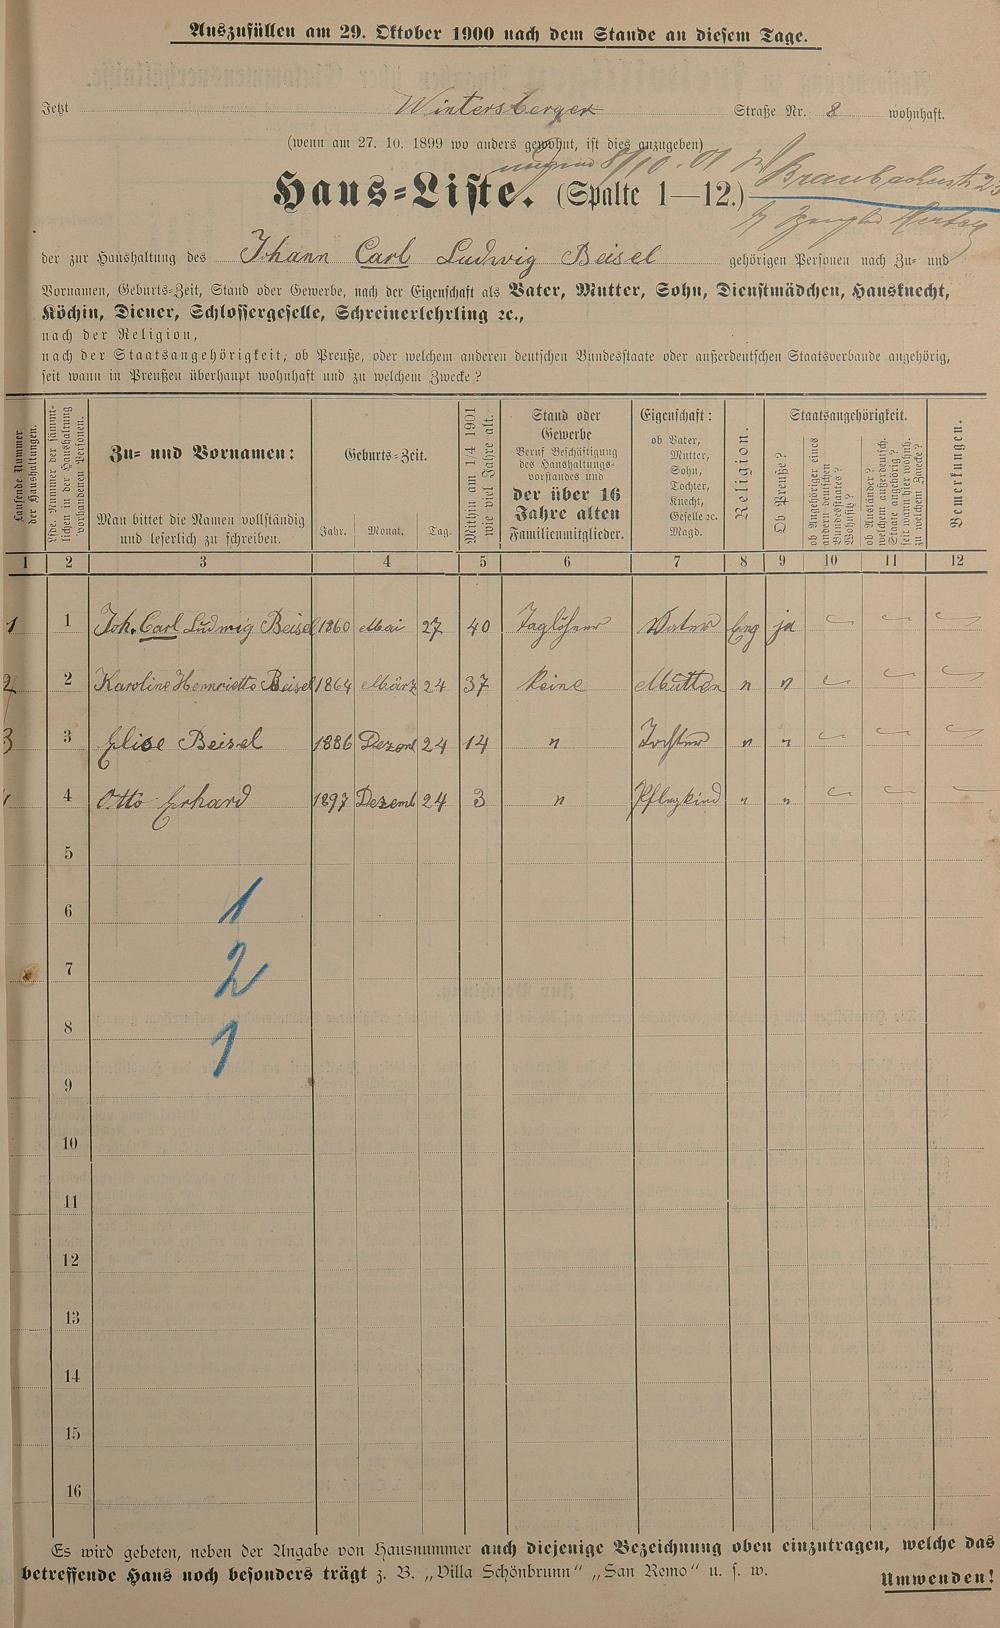 Auszufüllen am 29. Oktober 1900 nach dem Stande an diesem Tage.
Jetzt Wintersberger Straße Nr. 8 wohnhaft.
(wenn am 27. 10. 1899 wo anders gewohnt, ist dies anzugeben)
8/10. 01
Haus-Liste. (Spalte 1—12.)
der zur Haushaltung des Johann Carl Ludwig Beisel gehörigen Personen nach Zu- und
Vornamen, Geburts-Zeit, Stand oder Gewerbe, nach der Eigenschaft als Vater, Mutter, Sohn, Dienstmädchen, Hausknecht,
Köchin, Diener, Schlossergeselle, Schreinerlehrling ec.,
nach der Religion,
nach der Staatsangehörigkeit; ob Preuße, oder welchem anderen deutschen Bundesstaate oder außerdeutschen Staatsverbande angehörig,
seit wann in Preußen überhaupt wohnhaft und zu welchem Zwecke?
Laufende Nummer
der Haushaltungen.
Lfde. Nummer der sämmt-
lichen in der Haushaltung
vorhandenen Personen.
Zu- und Vornamen:
Man bittet die Namen vollständig
und leserlich zu schreiben.
Geburts-Zeit.
Jahr. Monat. Tag.
Mithin am 1/4 1901
wie viel Jahre alt.
Stand oder
Gewerbe
Beruf Beschäftigung
des Haushaltungs-
vorstandes und
der über 16
Jahre alten
Familienmitglieder.
Eigenschaft:
ob Vater,
Mutter,
Sohn,
Tochter,
Knecht,
Geselle ec.
Magd.
Religion.
Staatsangehörigkeit.
Ob Preuße?
ob Angehöriger eines
andern deutschen
Bundesstaates?
Wohnsitz?
ob Ausländer?
welchem außerdeutsch.
Staate angehörig?
seit wann hier wohnh.
zu welchem Zwecke?
Bemerkungen.
1 2 3 4 5 6 7 8 9 10 11 12
1 1 Joh. Carl Ludwig Beisel 1860 Mai 27 40 Taglöhner Vater Evg ja
2 2 Karoline Hennriette Beisel 1864 März 24 37 keine Mutter " "
3 3 Elise Beisel 1886 Dezemb 24 14 " Tochter " "
4 Otto Erhard 1897 Dezemb 24 3 " Pflegkind " "
5
6
1
7
2
8
1
9
10
11
12
13
14
15
16
Es wird gebeten, neben der Angabe von Hausnummer auch diejenige Bezeichnung oben einzutragen, welche das
betreffende Haus noch besonders trägt z. B. „Villa Schönbrunn“ „San Remo“ u. s. w.
Umwenden!